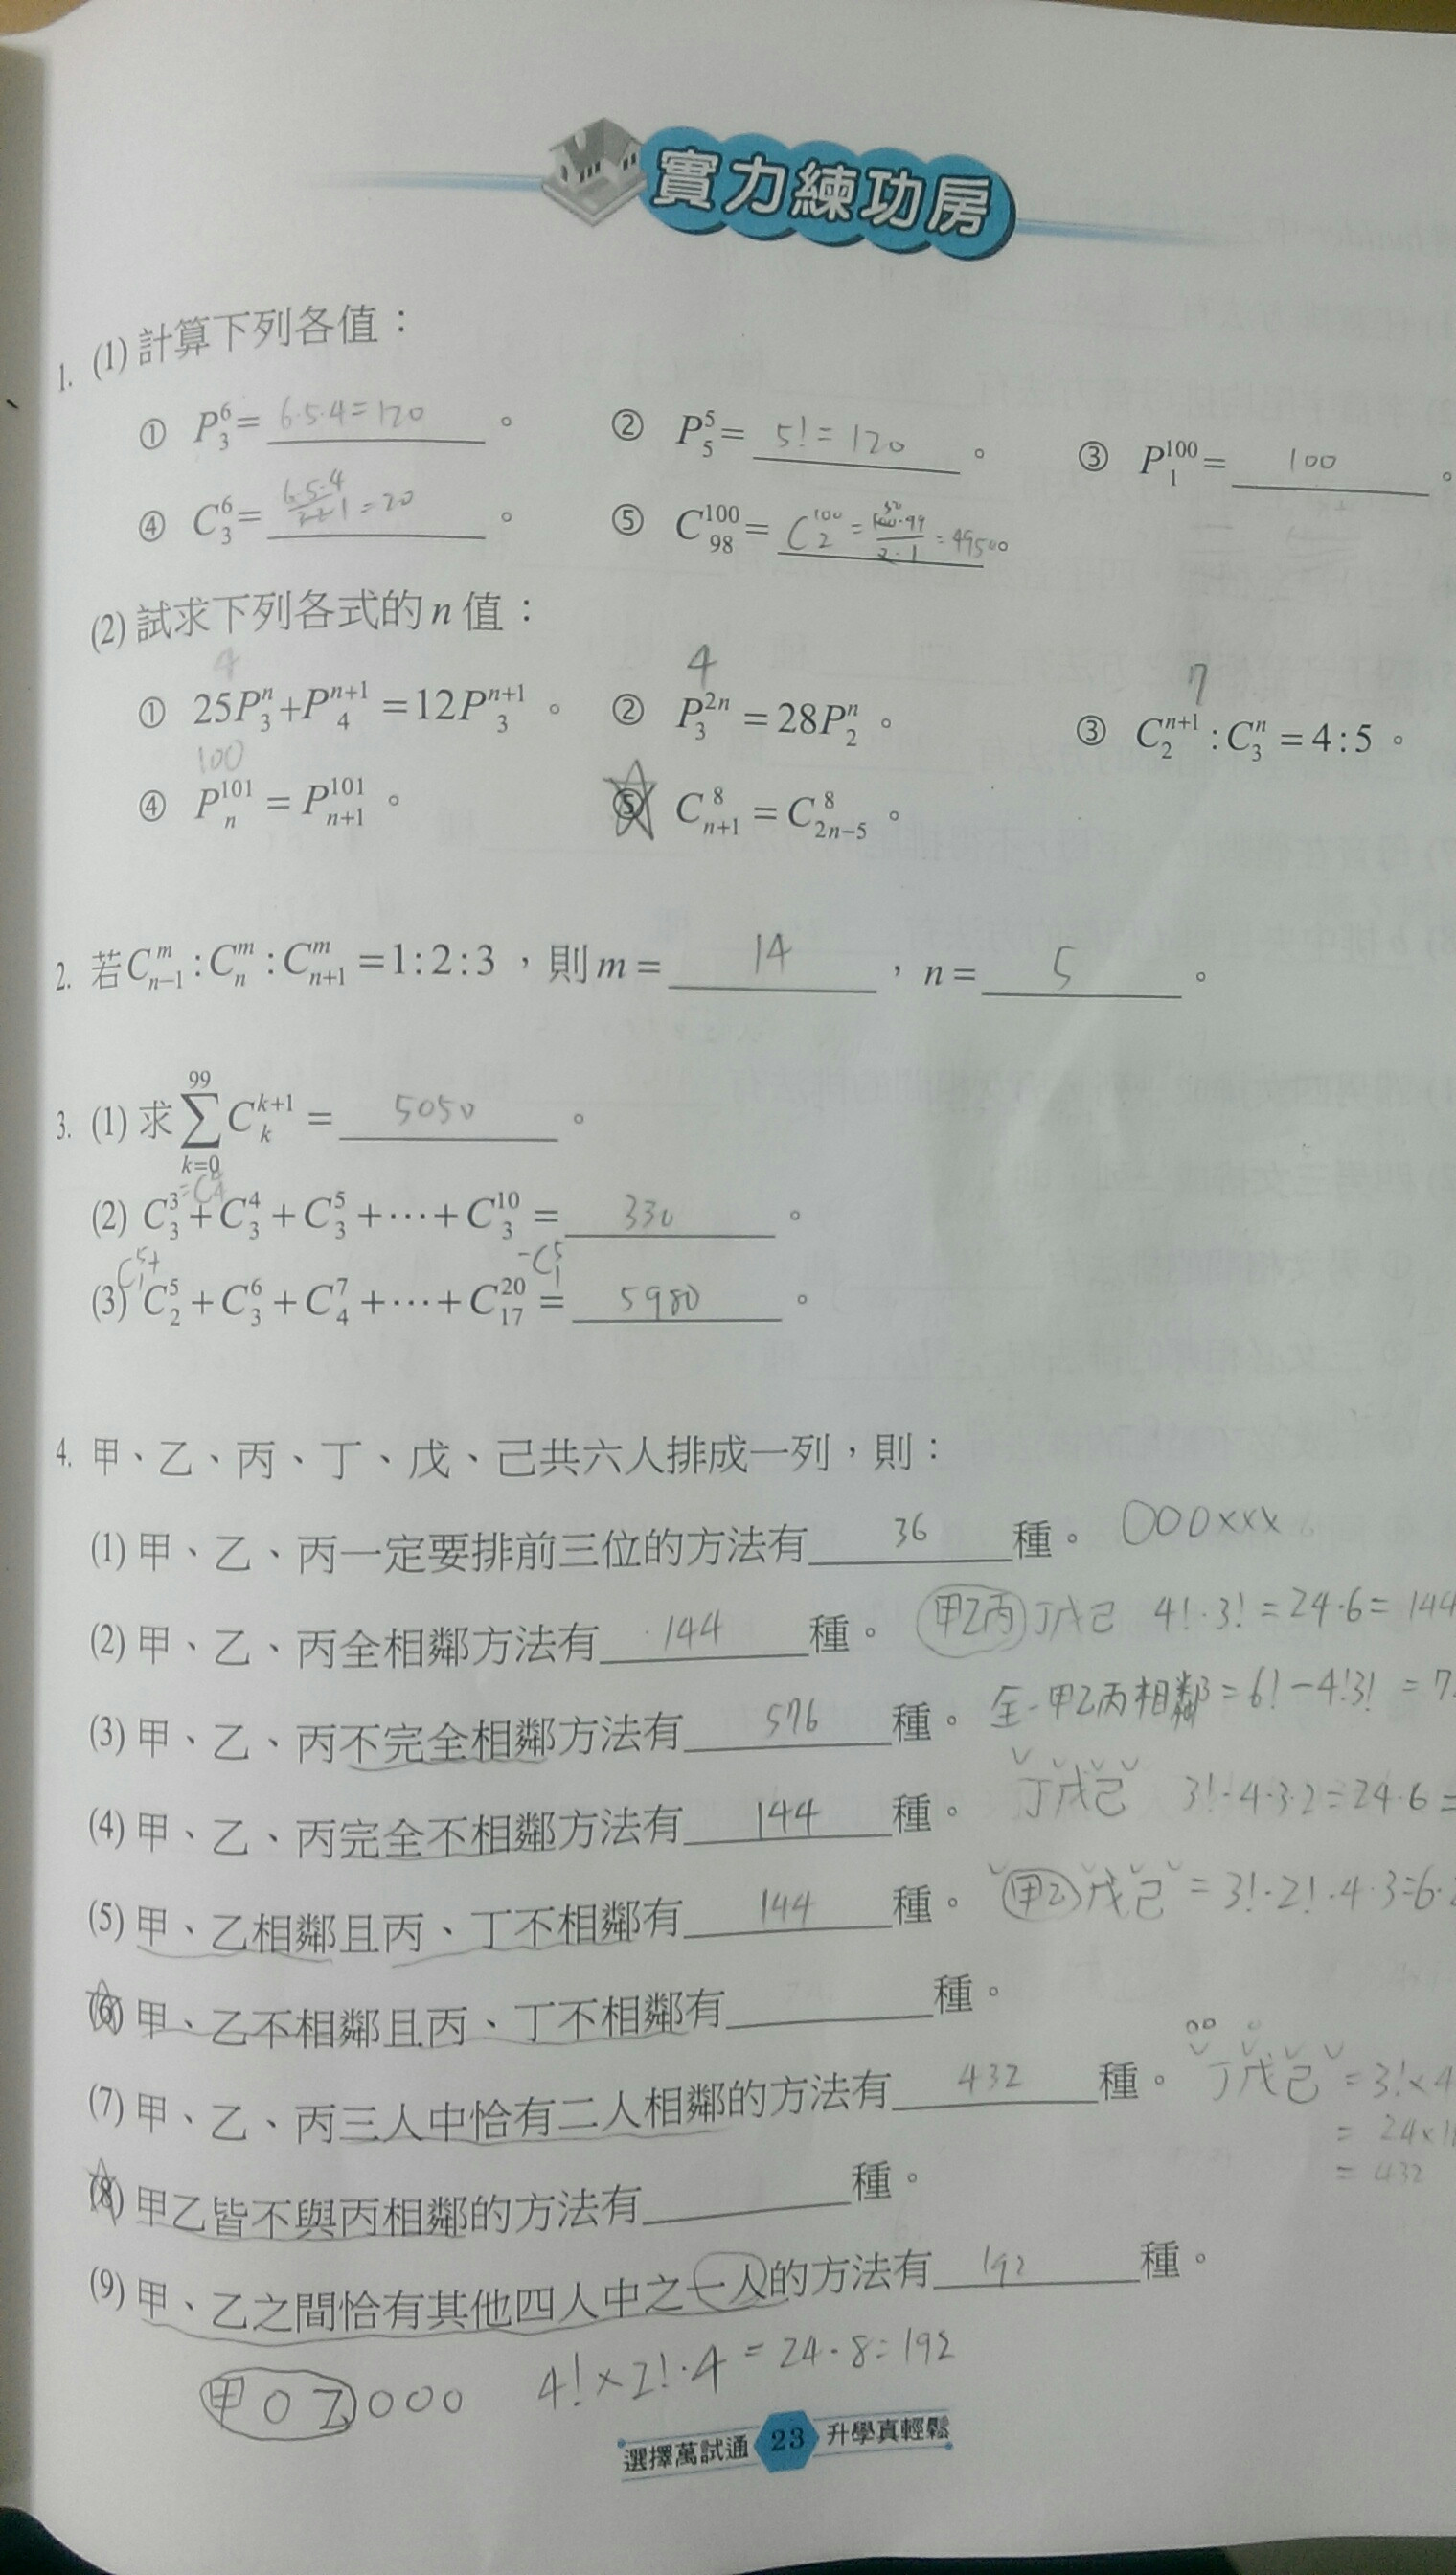 實力練功房
1. (1) 計算下列各值：
① P₃⁶= 6·5·4=120 。 ② P₅⁵= 5!=120 。 ③ P₁¹⁰⁰= 100 。
④ C₃⁶= 6·5·4 / 3·2·1 =20 。 ⑤ C₉₈¹⁰⁰= C₂¹⁰⁰ = 100·99 / 2·1 = 4950 。
50
(2) 試求下列各式的 n 值：
4 4 7
① 25P₃ⁿ+P₄ⁿ⁺¹=12P₃ⁿ⁺¹ 。 ② P₃²ⁿ=28P₂ⁿ 。 ③ C₂ⁿ⁺¹:C₃ⁿ=4:5 。
100
④ Pₙ¹⁰¹=Pₙ₊₁¹⁰¹ 。 ⑤ Cₙ₊₁⁸=C₂ₙ₋₅⁸ 。
2. 若Cₙ₋₁ᵐ:Cₙᵐ:Cₙ₊₁ᵐ=1:2:3，則 m = 14 ，n = 5 。
3. (1) 求 ∑ₖ₌₀⁹⁹ Cₖᵏ⁺¹ = 5050 。
(2) C₃³+C₃⁴+C₃⁵+⋯+C₃¹⁰= 330 。
C₁⁵+ -C₁⁵
(3) C₂⁵+C₃⁶+C₄⁷+⋯+C₁₇²⁰= 5980 。
4. 甲、乙、丙、丁、戊、己共六人排成一列，則：
(1) 甲、乙、丙一定要排前三位的方法有 36 種。 OOO×××
(2) 甲、乙、丙全相鄰方法有 144 種。 甲乙丙 丁戊己 4!·3!=24·6=144
(3) 甲、乙、丙不完全相鄰方法有 576 種。 全-甲乙丙相鄰=6!-4!3! =7
(4) 甲、乙、丙完全不相鄰方法有 144 種。 丁戊己 3!·4·3·2=24·6=
(5) 甲、乙相鄰且丙、丁不相鄰有 144 種。 甲乙 戊己 = 3!·2!·4·3=6·
(6) 甲、乙不相鄰且丙、丁不相鄰有 種。
(7) 甲、乙、丙三人中恰有二人相鄰的方法有 432 種。 丁戊己 =3!×4
= 24×1
= 432
(8) 甲乙皆不與丙相鄰的方法有 種。
(9) 甲、乙之間恰有其他四人中之一人的方法有 192 種。
甲O乙OOO 4!×2!·4 =24·8=192
選擇萬試通 23 升學真輕鬆